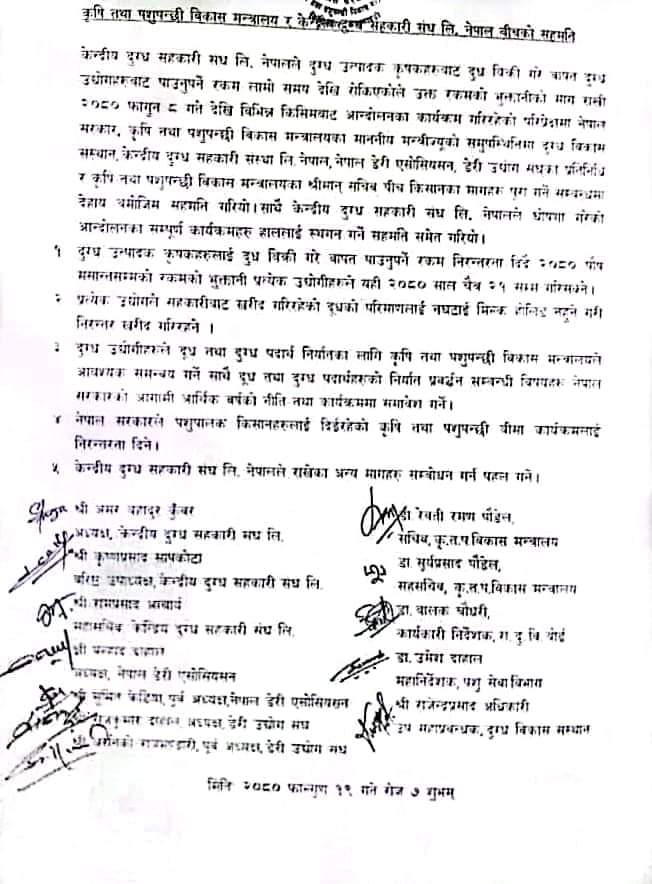 कृषि तथा पशुपन्छी विकास मन्त्रालय र केन्द्रीय दुग्ध सहकारी संघ लि. नेपाल बीचको सहमति
केन्द्रीय दुग्ध सहकारी संघ लि. नेपालले दुग्ध उत्पादक कृषकहरुबाट दुध बिक्री गरे बापत दुग्ध
उद्योगहरुबाट पाउनुपर्ने रकम लामो समय देखि रोकिएकोले उक्त रकमको भुक्तानीको माग राखी
२०८० फागुन ८ गते देखि विभिन्न किसिमबाट आन्दोलनका कार्यक्रम गरिरहेको परिप्रेक्ष्यमा नेपाल
सरकार, कृषि तथा पशुपन्छी विकास मन्त्रालयका माननीय मन्त्रीज्यूको समुपस्थितिमा दुग्ध विकास
संस्थान, केन्द्रीय दुग्ध सहकारी संस्था लि. नेपाल, नेपाल डेरी एसोसियसन, डेरी उद्योग संघका प्रतिनिधि
र कृषि तथा पशुपन्छी विकास मन्त्रालयका श्रीमान् सचिव बीच किसानका मागहरु पुरा गर्ने सम्बन्धमा
देहाय बमोजिम सहमति गरियो। साथै केन्द्रीय दुग्ध सहकारी संघ लि. नेपालले घोषणा गरेको
आन्दोलनका सम्पूर्ण कार्यक्रमहरु हाललाई स्थगन गर्ने सहमति समेत गरियो।
१ दुग्ध उत्पादक कृषकहरुलाई दुध बिक्री गरे बापत पाउनुपर्ने रकम निरन्तरता दिँदै २०८० पौष
मसान्तसम्मको रकमको भुक्तानी प्रत्येक उद्योगीहरुले यही २०८० साल चैत्र २१ सम्म गरिसक्ने।
२ प्रत्येक उद्योगले सहकारीबाट खरीद गरिरहेको दूधको परिमाणलाई नघटाई मिल्क होलिडे नहुने गरी
निरन्तर खरीद गरिरहने ।
३ दुग्ध उद्योगीहरुले दूध तथा दुग्ध पदार्थ निर्यातका लागि कृषि तथा पशुपन्छी विकास मन्त्रालयले
आवश्यक समन्वय गर्ने साथै दूध तथा दुग्ध पदार्थहरुको निर्यात प्रवर्द्धन सम्बन्धी विषयहरु नेपाल
सरकारको आगामी आर्थिक बर्षको नीति तथा कार्यक्रममा समावेश गर्ने।
४ नेपाल सरकारले पशुपालक किसानहरुलाई दिईरहेको कृषि तथा पशुपन्छी बीमा कार्यक्रमलाई
निरन्तरता दिने।
५ केन्द्रीय दुग्ध सहकारी संघ लि. नेपालले राखेका अन्य मागहरु सम्बोधन गर्न पहल गर्ने।
श्री अमर बहादुर कुँवर
अध्यक्ष, केन्द्रीय दुग्ध सहकारी संघ लि.
श्री कृष्णप्रसाद सापकोटा
बरिष्ठ उपाध्यक्ष, केन्द्रीय दुग्ध सहकारी संघ लि.
श्री रामप्रसाद आचार्य
महासचिब केन्द्रिय दुग्ध सहकारी संघ लि.
श्री प्रल्हाद दाहाल
अध्यक्ष, नेपाल डेरी एसोसियसन
श्री सुमित केडिया, पुर्व अध्यक्ष, नेपाल डेरी एसोसियसन
राजकुमार दाहाल अध्यक्ष, डेरी उद्योग संघ
राजभण्डारी, पुर्व अध्यक्ष, डेरी उद्योग संघ
डा. रेवती रमण पौडेल,
सचिव, कृ.त.प.विकास मन्त्रालय
डा. सुर्यप्रसाद पौडेल,
सहसचिव, कृ.त.प.विकास मन्त्रालय
डा. बालक चौधरी,
कार्यकारी निर्देशक, रा. दु. वि. बोर्ड
डा. उमेश दाहाल
महानिर्देशक, पशु सेवा विभाग
श्री राजेन्द्रप्रसाद अधिकारी
उप महाप्रबन्धक, दुग्ध विकास संस्थान
मिति २०८० फाल्गुण १९ गते रोज ७ शुभम्